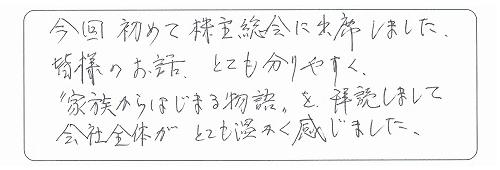 今回初めて株主総会に出席しました、
皆様のお話、とても分りやすく、
"家族からはじまる物語"を拝読しまして
会社全体がとても温かく感じました、